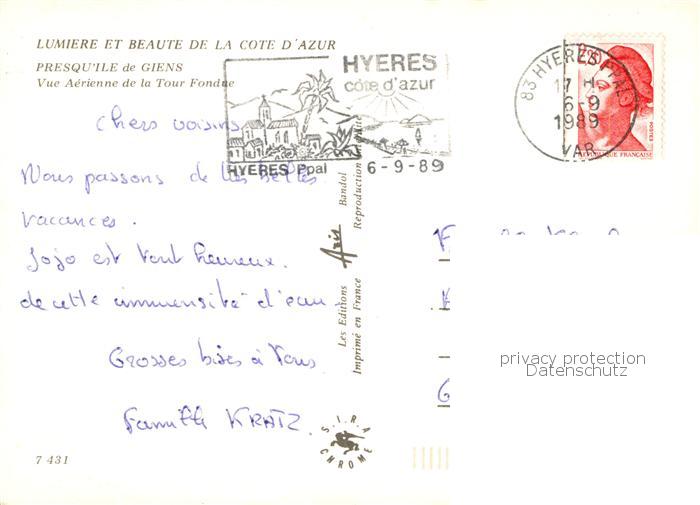 LUMIERE ET BEAUTE DE LA COTE D'AZUR
PRESQU'ILE de GIENS
Vue Aérienne de la Tour Fondue
HYERES
côte d'azur
HYERES Ppal
6-9-89
83 HYERES PPAL
17 H
6-9
1989
VAR
REPUBLIQUE FRANÇAISE
POSTES
Chers voisins
Nous passons de très belles
vacances.
Jojo est tout heureux.
de cette immensité d'eau
Grosses bises à tous
Famille KRATZ.
Les Editions Aris Bandol
Imprimé en France Reproduction
S.I.R.A.
CHROME
7 431
privacy protection
Datenschutz